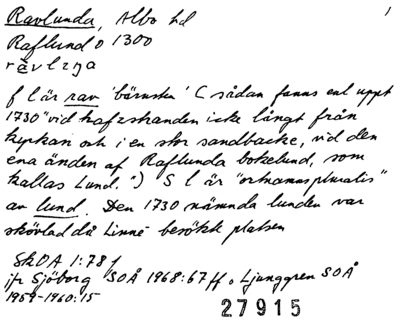 Ravlunda, Albo hd
Raflund o 1300
rävlꝫŋa
f l är rav 'bärnsten' (sådan fanns enl uppt
1730 "vid hafzstranden icke långt från
kyrkan och i en stor sandbacke, vid den
ena änden af Raflunda bokelund, som
kallas Lund.") S l är "ortnamnspluralis"
av lund. Den 1730 nämnda lunden var
skövlad då Linné besökte platsen
SkOA 1:78 f
jfr Sjöborg SOÅ 1968:67 ff o Ljunggren SOÅ
1959-1960:15
27915